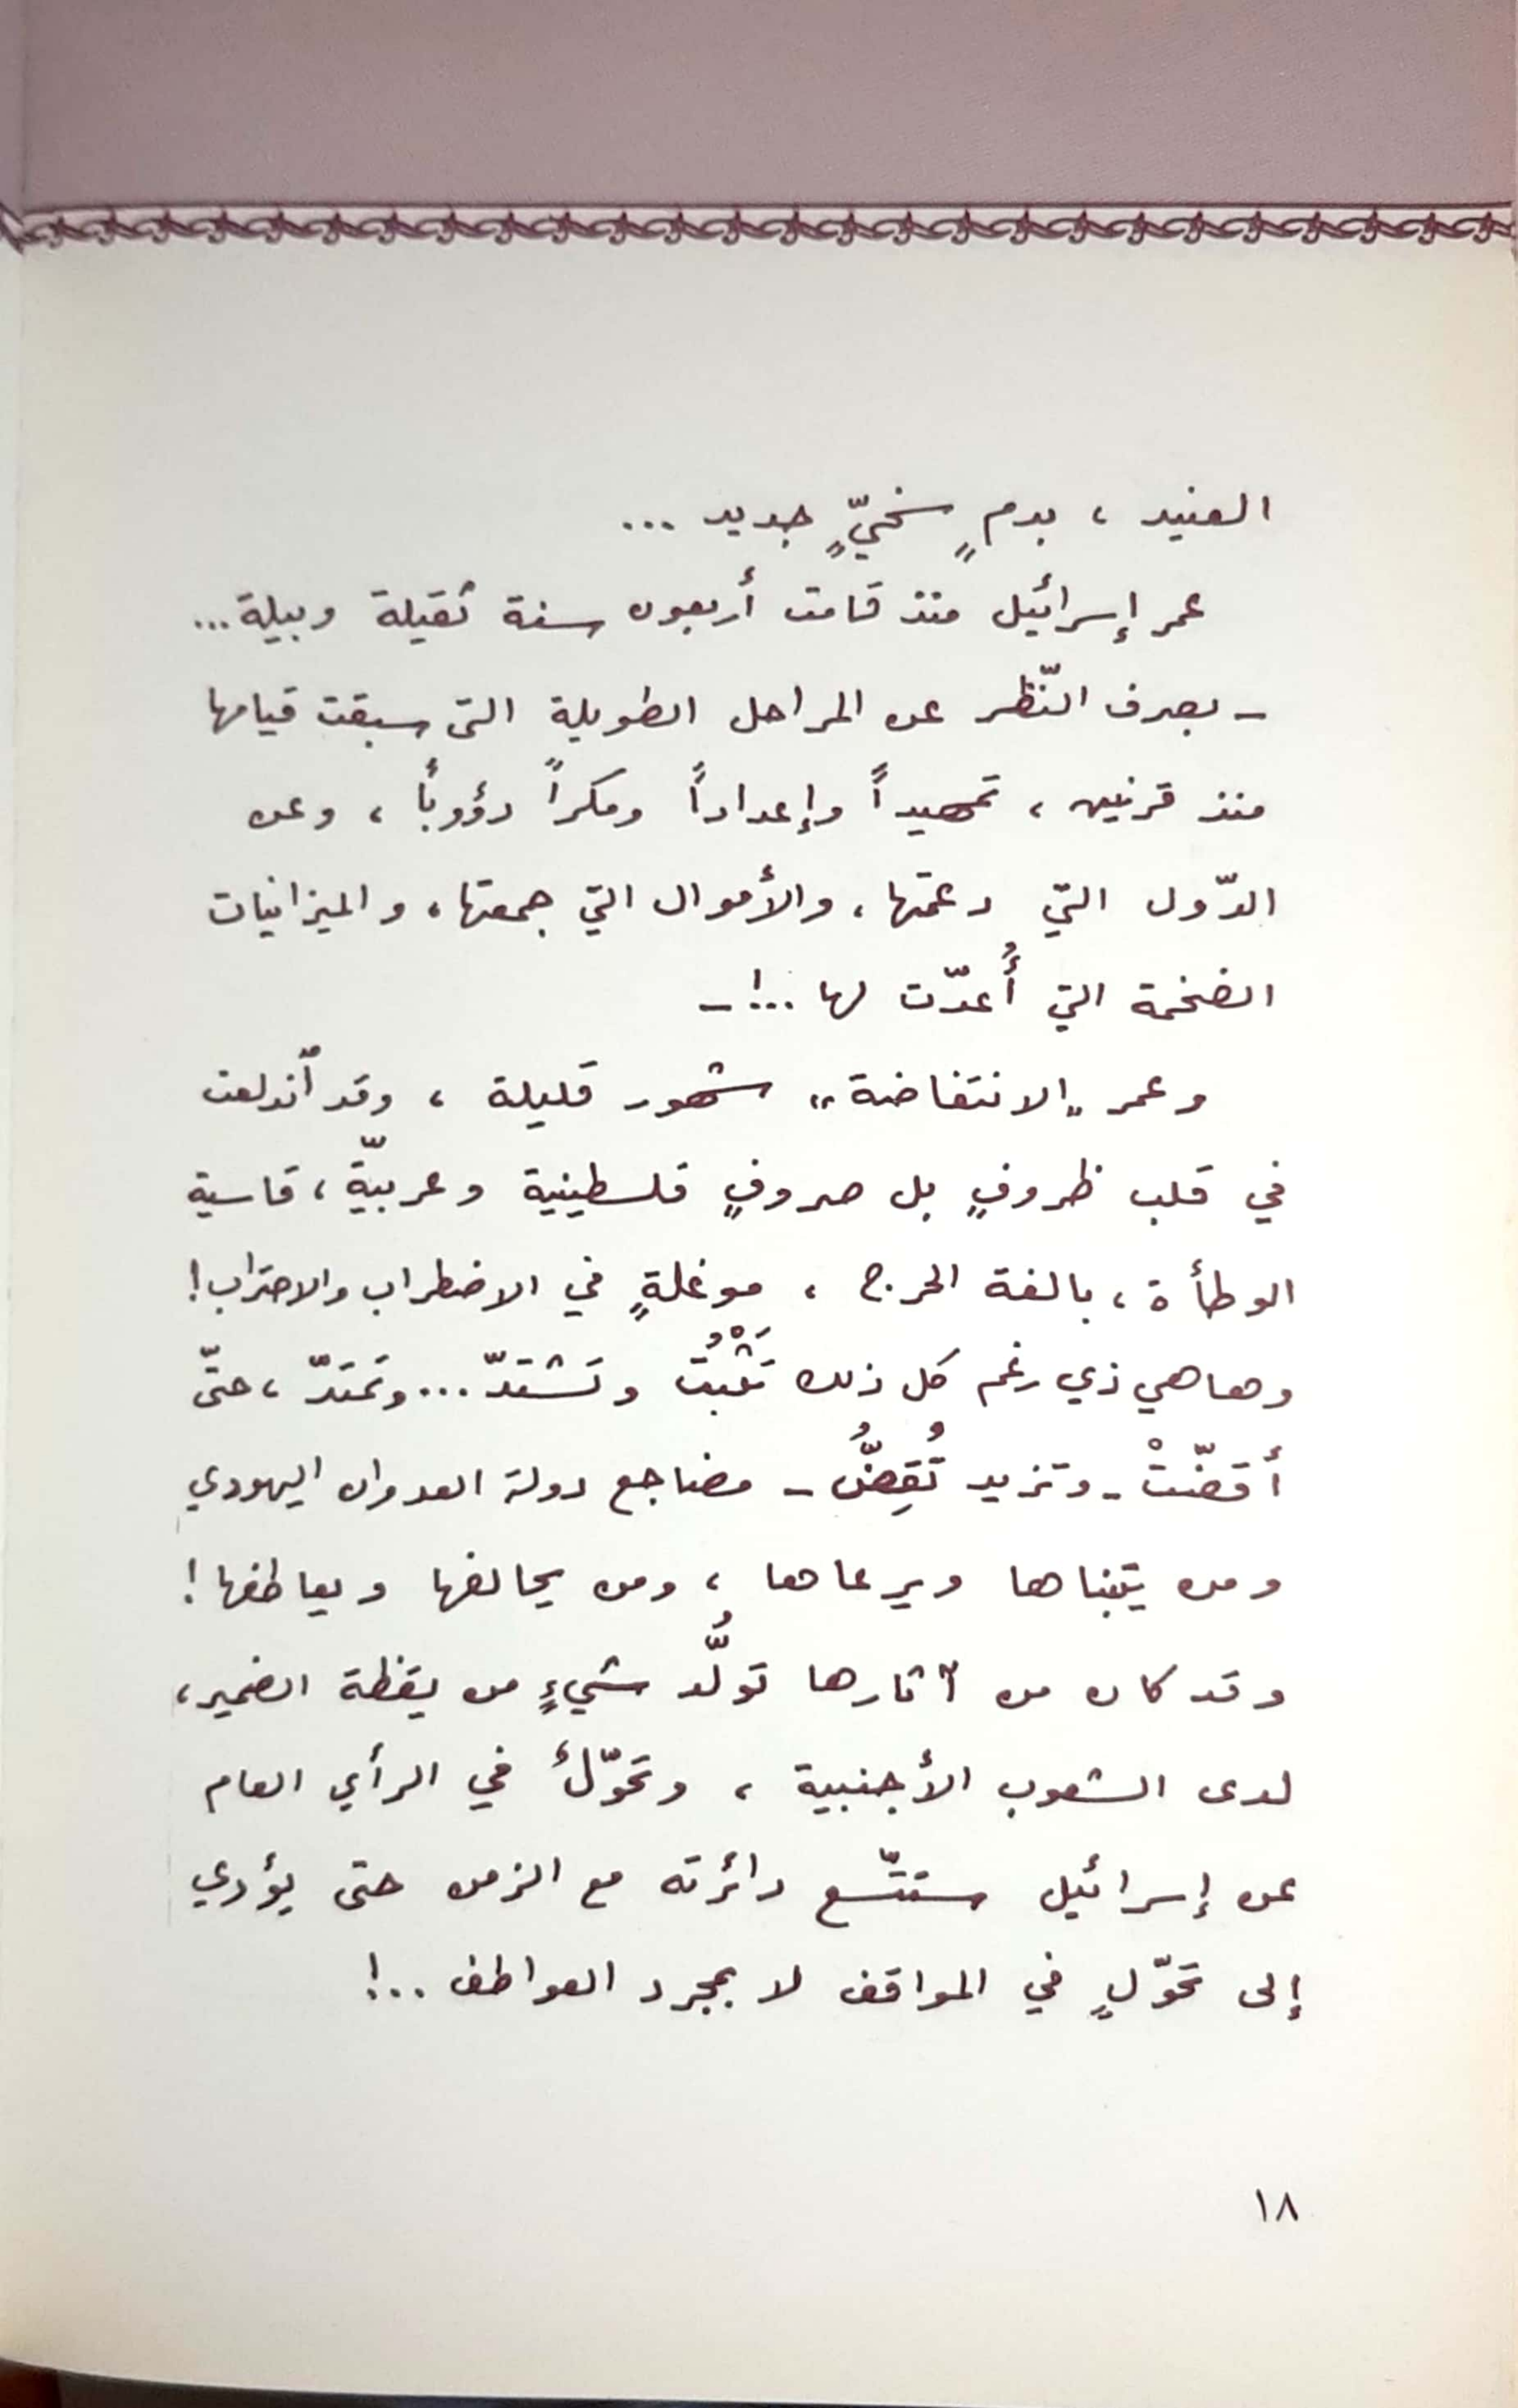 العنيد ، بدمٍ سخيٍّ جديد ...
عمر إسرائيل منذ قامت أربعون سنة ثقيلة وبيلة ...
ـ بصرف النّظر عن المراحل الطويلة التي سبقت قيامها
منذ قرنين ، تمهيداً وإعداداً ومكراً دؤوباً ، وعن
الدّول التي دعمتها ، والأموال التي جمعتها ، والميزانيات
الضخمة التي أُعدّت لها ..! ـ
وعمر "الانتفاضة" شهور قليلة ، وقد ٱندلعت
في قلب ظروفٍ بل صروفٍ فلسطينية وعربيّة ، قاسية
الوطأة ، بالغة الحرج ، موغلةٍ في الاضطراب والاحتراب !
وها هي ذي رغم كل ذلك تَثْبُتُ وتَشتدّ ... وتَمتَدّ ، حتّى
أقضّتْ ـ وتزيد تُقِضُّ ـ مضاجع دولة العدوان اليهودي
ومن يتبناها ويرعاها ، ومن يحالفها ويعاطفها !
وقد كان من آثارها تولُّد شيءٍ من يقظة الضمير ،
لدى الشعوب الأجنبية ، وتحوّلٌ في الرأي العام
عن إسرائيل ستتّسع دائرته مع الزمن حتى يؤدي
إلى تحوّلٍ في المواقف لا بمجرد العواطف ..!
١٨